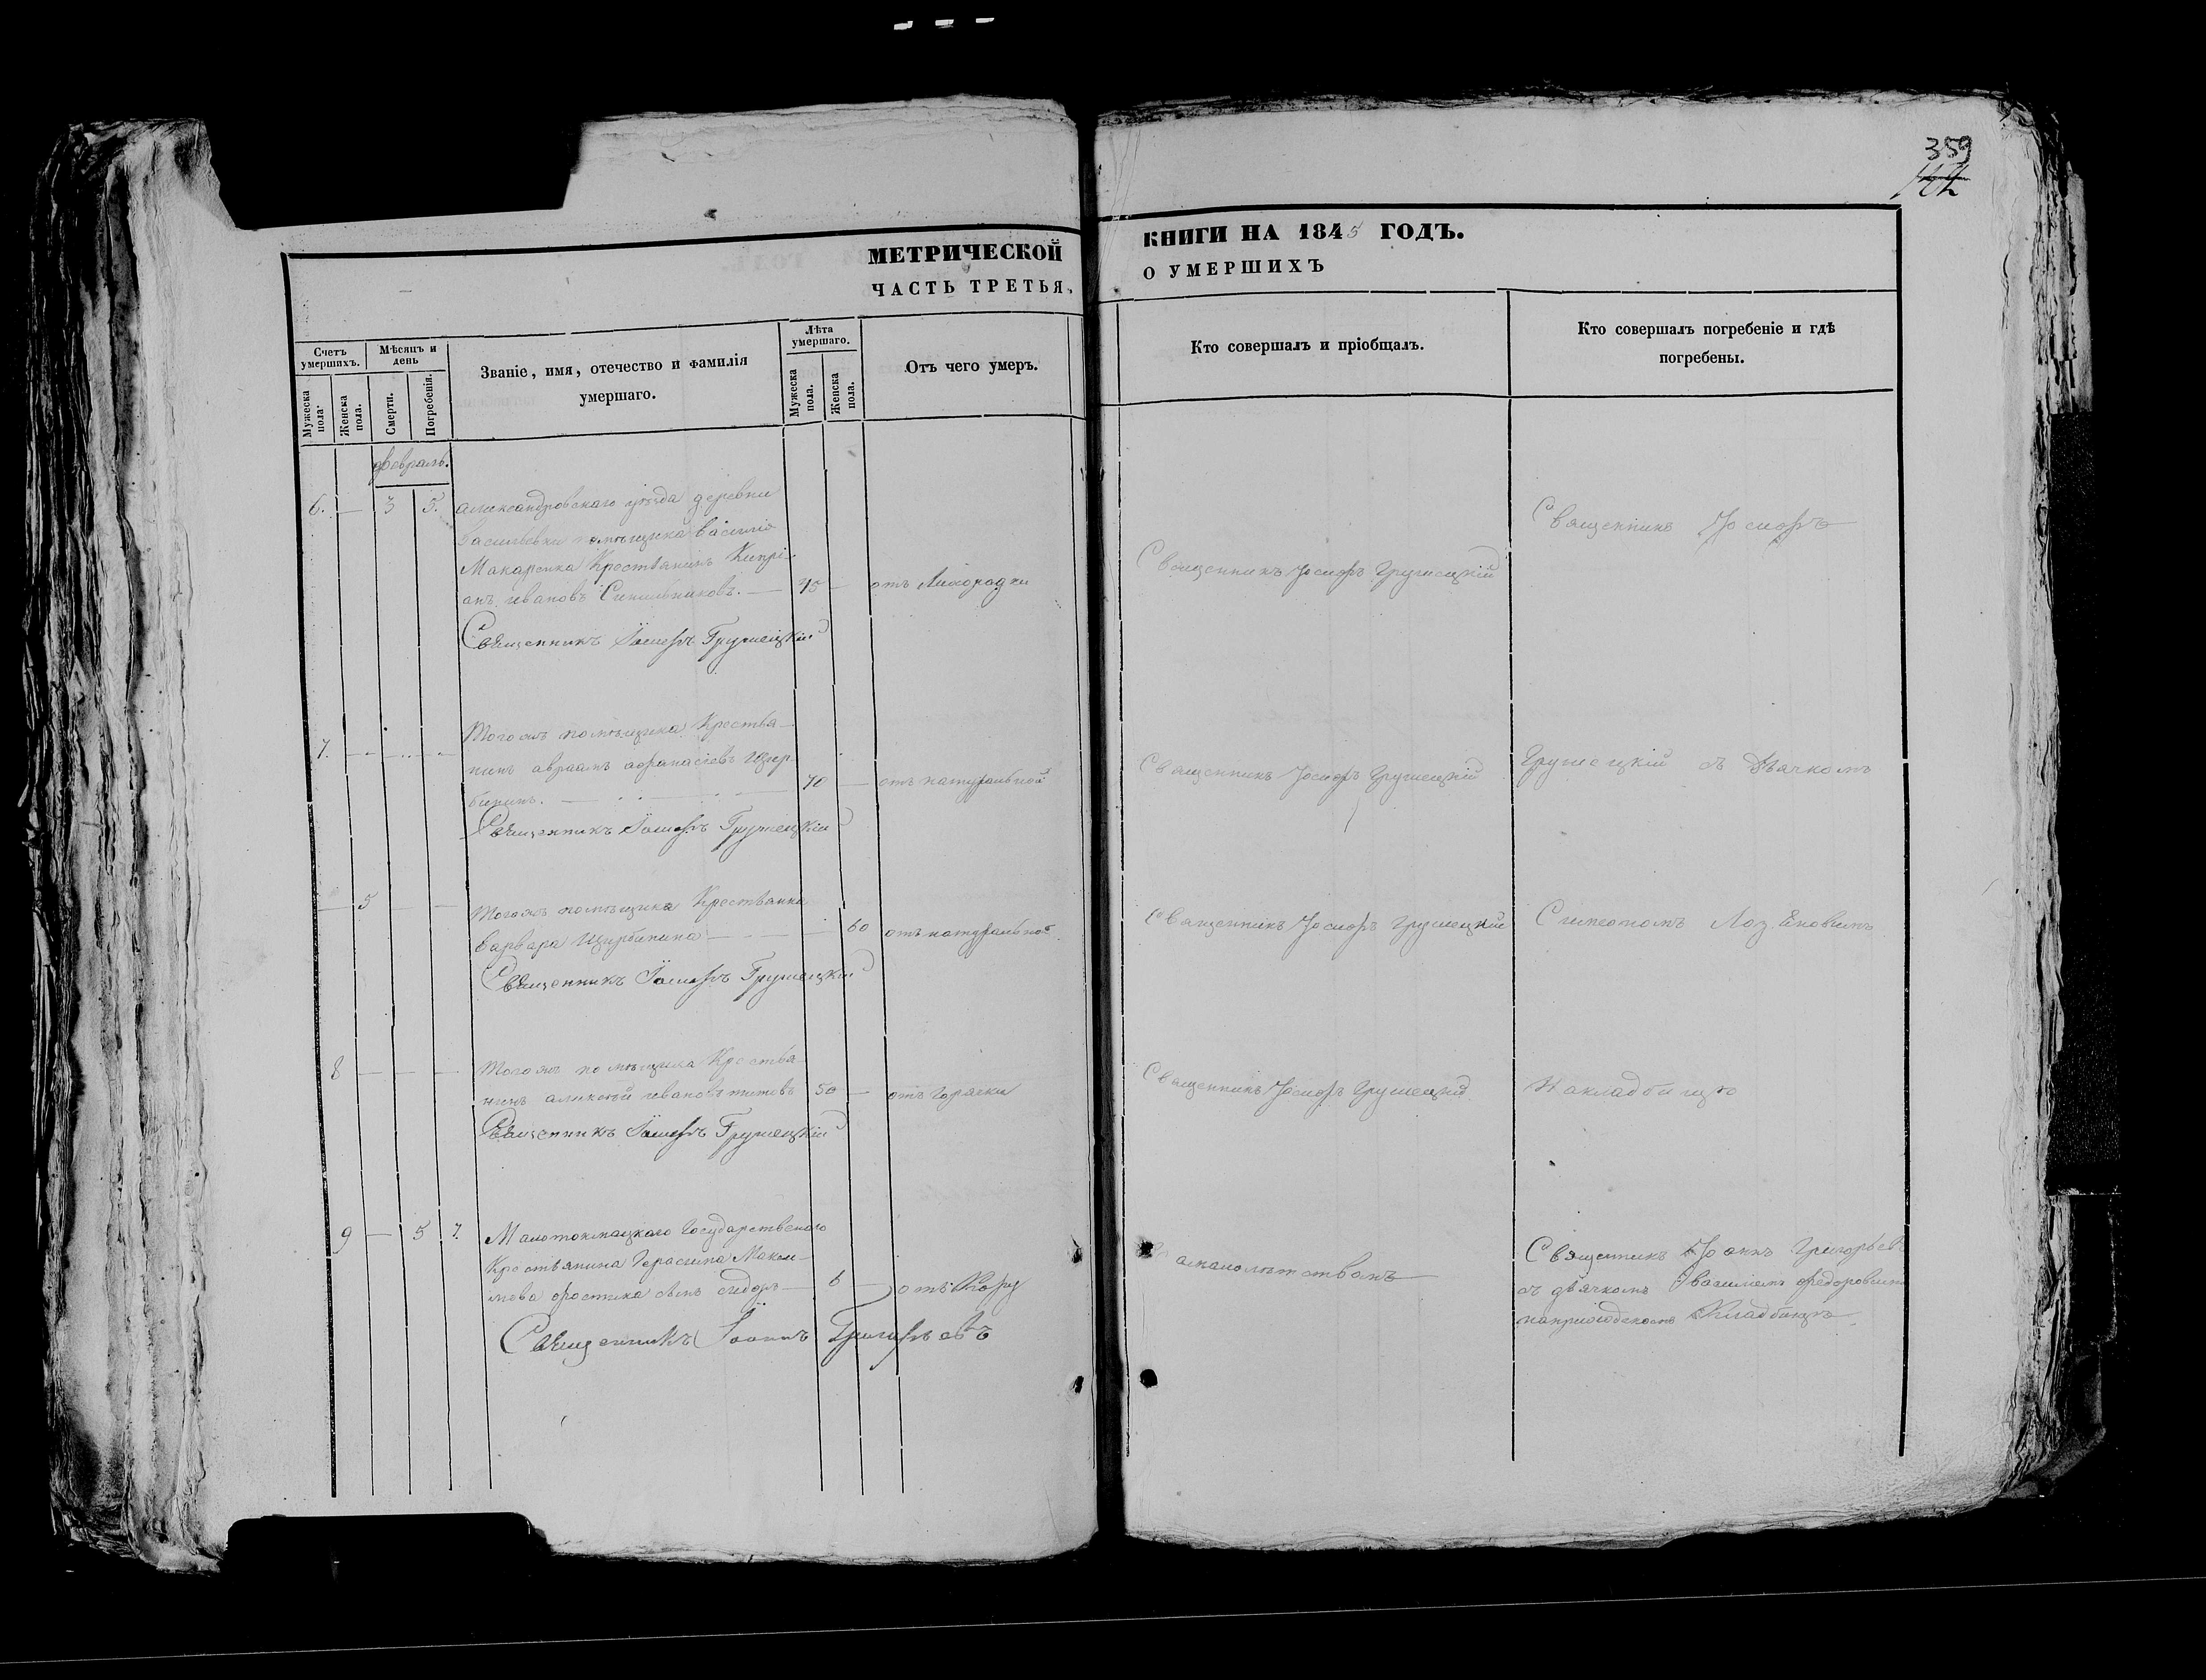 359
144
МЕТРИЧЕСКОЙ
ЧАСТЬ ТРЕТЬЯ,
КНИГИ НА 1845 ГОДЪ.
О УМЕРШИХЪ
Счетъ умершихъ.
Мужеска пола.
Женска пола.
Мѣсяцъ и день
Смерти.
Погребенія.
Званіе, имя, отечество и фамилія
умершаго.
Лѣта умершаго.
Мужеска пола.
Женска пола.
Отъ чего умеръ.
Кто совершалъ и пріобщалъ.
Кто совершалъ погребеніе и гдѣ
погребены.
февраль.
6. — 3 5. Александровскаго уѣзда деревни
Васильевки помѣщика Василія
Макаренка Крестьянинъ Кипрі-
анъ ивановъ Синильниковъ. — 45 — отъ Лихорадки
Священникъ Іосифъ Грушецкій
Священникъ Іосифъ Грушецкій
Священникъ Іосифъ
7. Тогожъ помѣщика Крестья-
нинъ авраамъ афанасіевъ щер-
бининъ. — 70 — отъ натуральной
Священникъ Іосифъ Грушецкій
Священникъ Іосифъ Грушецкій
Грушецкій съ Дьячкомъ
— 5 — — Тогожъ помѣщика Крестьянка
варвара Щербинина — 60 отъ натуральной
Священникъ Іосифъ Грушецкій
Священникъ Іосифъ Грушецкій
Симеономъ
8 — — — Тогожъ помѣщика Крестья-
нинъ алексѣй ивановъ титовъ 50 — отъ горячки
Священникъ Іосифъ Грушецкій
Священникъ Іосифъ Грушецкій
На кладбищѣ
9 — 5 7. Малотокмацкаго Государственого
Крестьянина Герасима Макси-
мова сынъ сидоръ — 6 — отъ Кору
Священникъ Іоаннъ Григорьевъ
Священникъ Іоаннъ Григорьевъ
съ дьячкомъ василіемъ федоровымъ
наприходскомъ Кладбищѣ